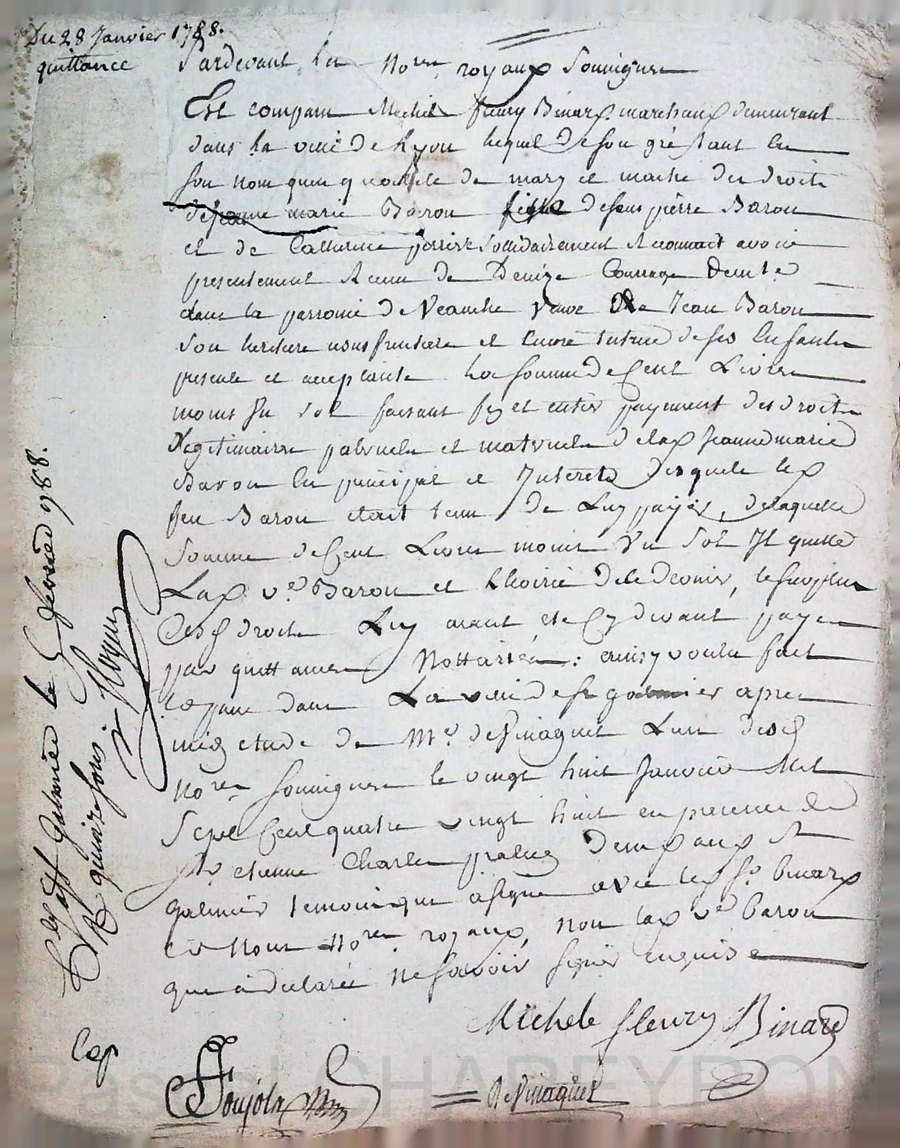 Du 28 Janvier 1788.
quittance
Pardevant les No.res royaux Soussignes
Est comparu Michel fleury Binard marchand demeurant
dans la ville de Lyon lequel de son gré tant en
son nom quen qualité de mary et maitre des droits
de Jeanne marie Baron fille de feus pierre Baron
et de Catherine solidairement Reconnait avoir
presentement Receu de Denize Courrage
dans la parroisse de Veauche veuve de Jean Baron
son heritiere usufruitiere et encore tutrice de ses Enfants
presente et acceptante La somme de Cent Livres
moins Un sol faisant fin et entier payement des droits
Legitimaires paternels et maternels de lad Jeanne marie
Baron En principal et Interets desquels led
feu Baron etait tenu de Luy payer, de laquelle
somme de Cent Livres moins Un sol Il quitte
Lad ve. Baron et Lhoirie de le surplus
Desd droits Luy ayant ete Cy devant payer
par quittances Nottariées: ainsy voulu fait
et passé dans La ville de St galmier apres
midy etude de Me. deVinaguet L'un desd
No.res soussignes le vingt huit Janvier Mil
Sept Cent quatre vingt huit en presence de
etienne Charles dud St
galmier temoin qui a signe avec led Sr. Binard
et Nous No.res royaux, non lad ve. baron
qui a declaré ne savoir signer enquise
Michele fleury Binard
Soujola
DeVinaguet
Cle a St Galmier le 5 fevrier 1788.
R quinze sous
Cap
Pascal CHABEYRON